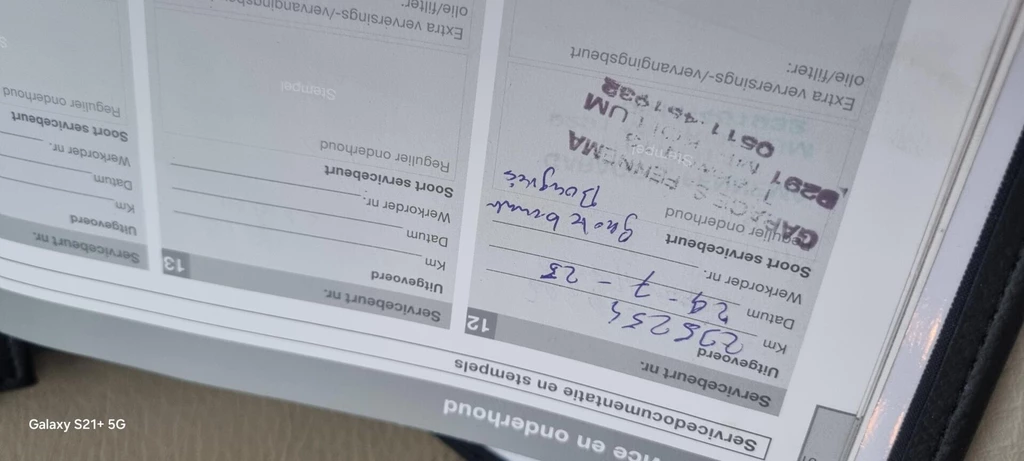 Service en onderhoud
Servicedocumentatie en stempels
Servicebeurt nr. 12
Uitgevoerd
Km 235254
Datum 29-7-25
Werkorder nr.
Soort servicebeurt grote beurt
Regulier onderhoud Bougies
GARAGE FENNEMA
9291
UM
0511 451932
Stempel
Extra verversings-/vervangingsbeurt
olie/filter:
Servicebeurt nr. 13
Uitgevoerd
Km
Datum
Werkorder nr.
Soort servicebeurt
Regulier onderhoud
Stempel
Extra verversings-/vervangingsbeurt
olie/filter:
Servicebeurt nr.
Uitgevoerd
Km
Datum
Werkorder nr.
Soort servicebeurt
Regulier onderhoud
Galaxy S21+ 5G